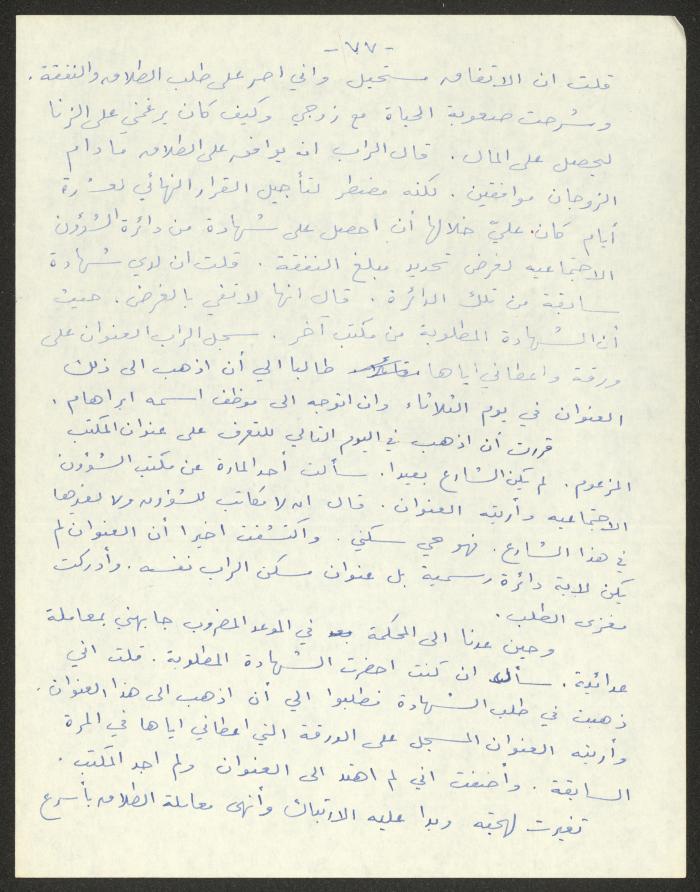 -٧٧-
قلت ان الاتفاق مستحيل واني اصر على طلب الطلاق والنفقة.
وشرحت صعوبة الحياة مع زوجي وكيف كان يرغمني على الزنا
ليحصل على المال. قال الراب انه يوافق على الطلاق ما دام
الزوجان موافقين. لكنه مضطر لتأجيل القرار النهائي لعشرة
أيام كان عليّ خلالها أن احصل على شهادة من دائرة الشؤون
الاجتماعيه لغرض تحديد مبلغ النفقة. قلت ان لدي شهادة
سابقة من تلك الدائرة. قال انها لا تفي بالغرض. حيث
أن الشهادة المطلوبة من مكتب آخر. سجل الراب العنوان على
ورقة واعطاني اياها طالبا الي أن اذهب الى ذلك
العنوان في يوم الثلاثاء وان اتوجه الى موظف اسمه ابراهام.
قررت أن اذهب في اليوم التالي للتعرف على عنوان المكتب
المزعوم. لم يكن الشارع بعيدا. سألت أحد المارة عن مكتب الشؤون
الاجتماعيه وأريته العنوان. قال ان لا مكاتب للشؤون ولا لغيرها
في هذا الشارع. فهو حي سكني. واكتشفت اخيرا أن العنوان لم
يكن لاية دائرة رسمية بل عنوان مسكن الراب نفسه. وأدركت
مغزى الطلب.
وحين عدنا الى المحكمة في الموعد المضروب جابهني بمعاملة
عدائية. سألني ان كنت احضرت الشهادة المطلوبة. قلت اني
ذهبت في طلب الشهادة فطلبوا الي أن اذهب الى هذا العنوان.
وأريته العنوان المسجل على الورقة التي اعطاني اياها في المرة
السابقة. وأضفت اني لم اهتد الى العنوان ولم اجد المكتب.
تغيرت لهجته وبدا عليه الارتباك وأنهى معاملة الطلاق بأسرع